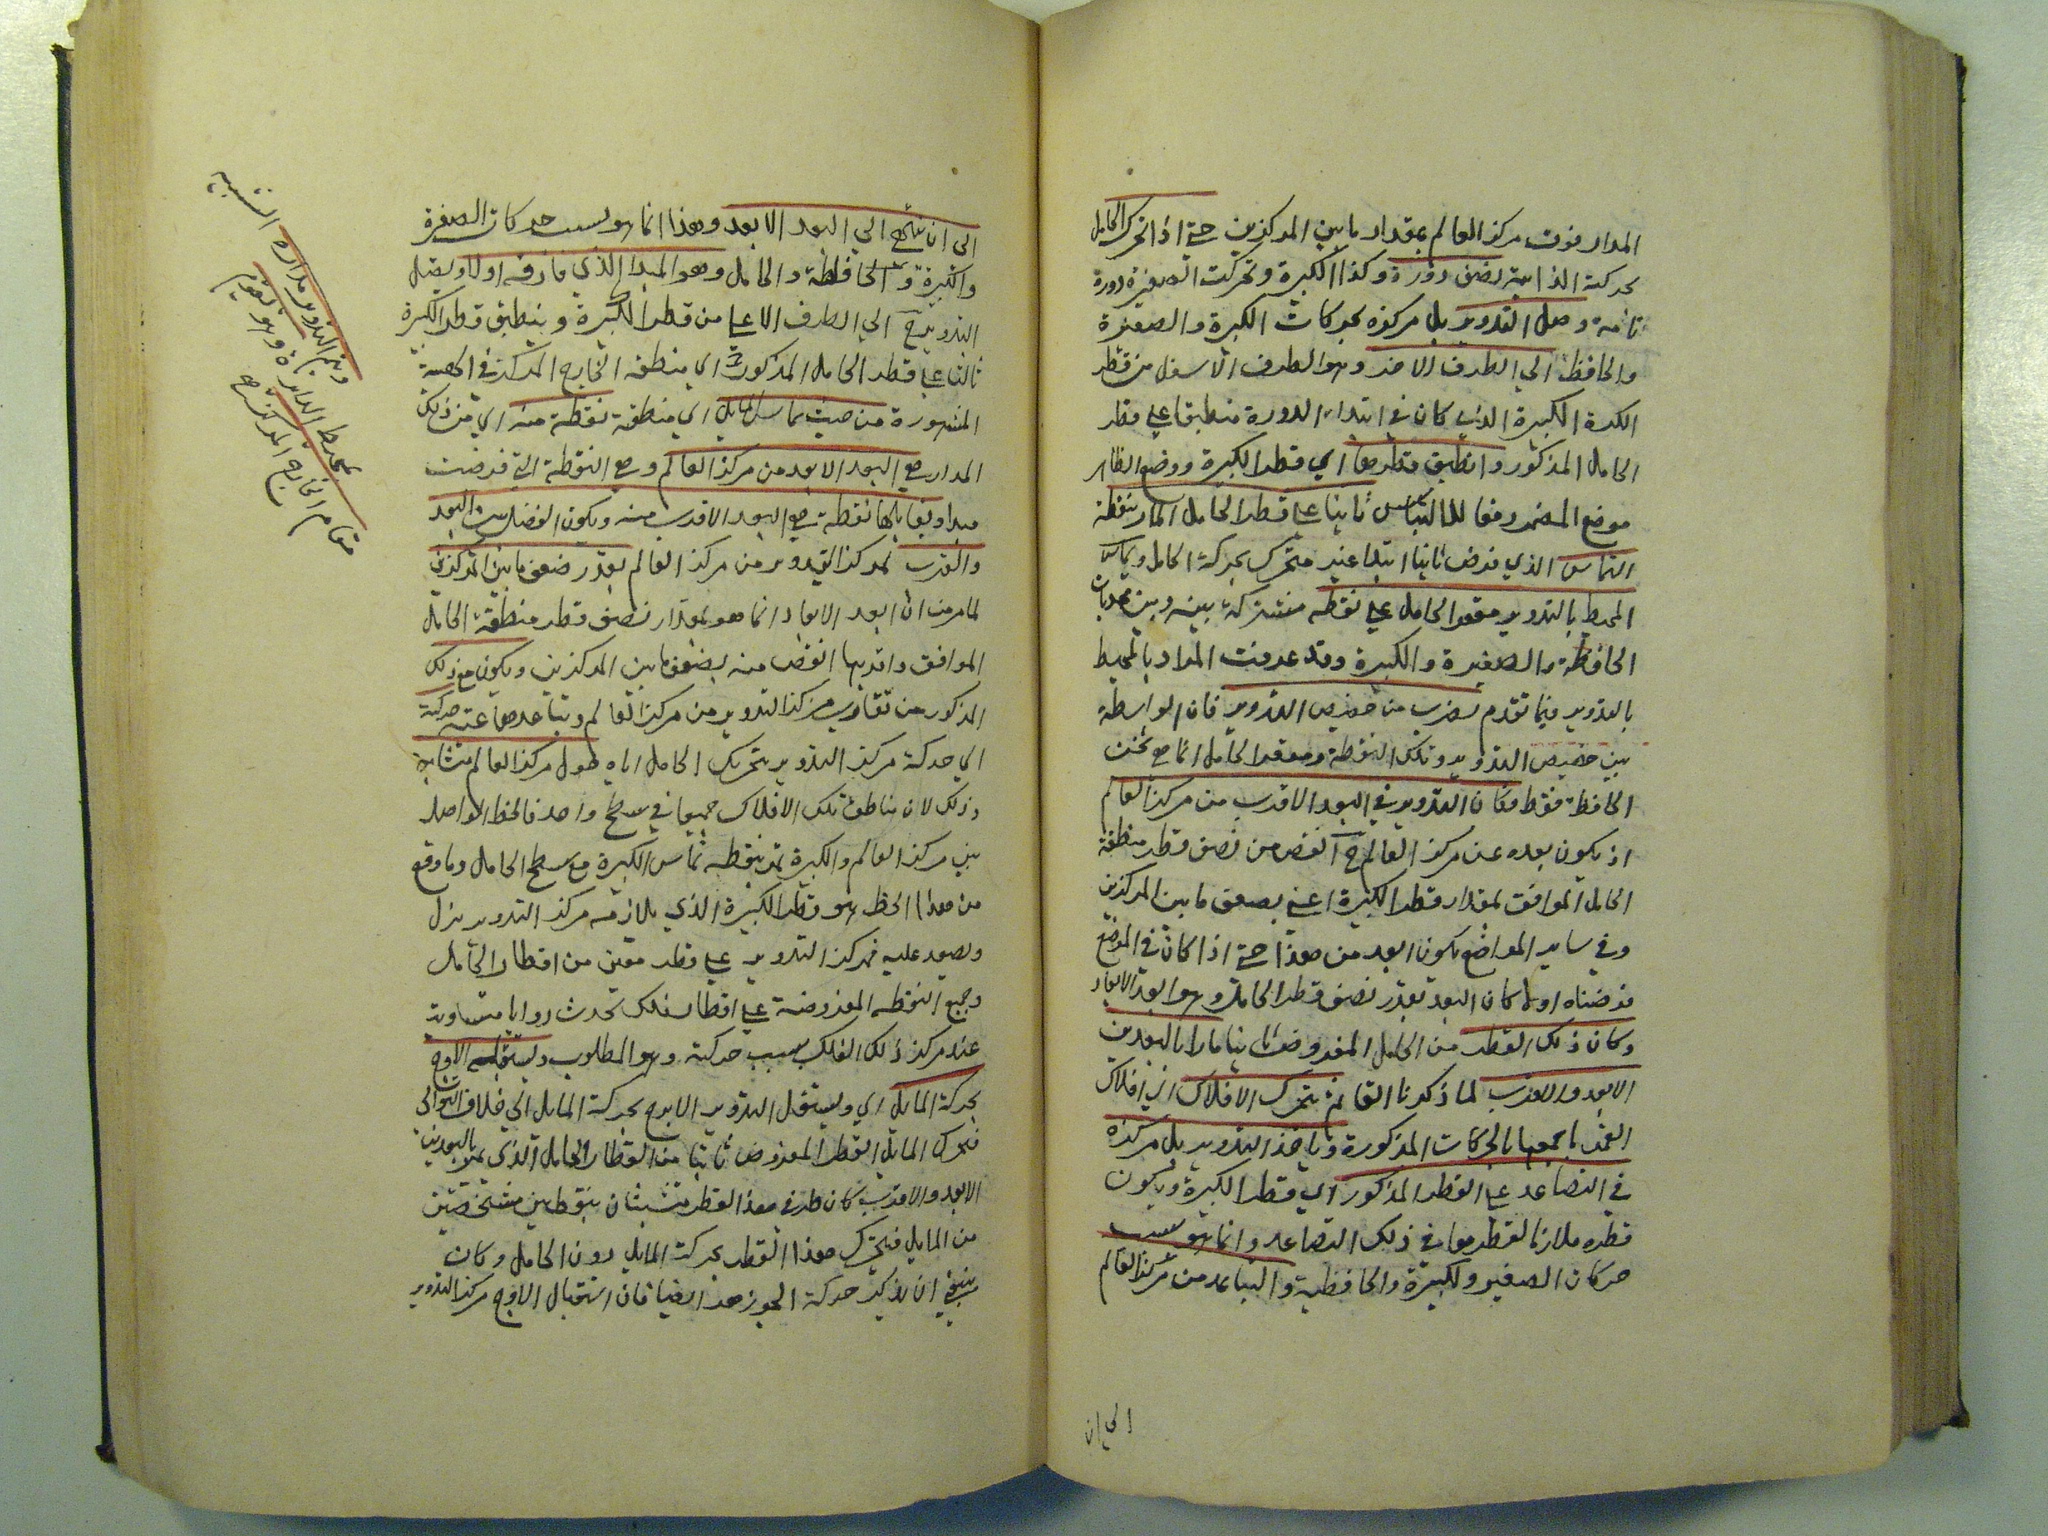 المدار فوت مركز العالم بمقدار ما بين المركزين حتى اذا تحرك الحامل
بحركته الذاتية نصف دورة وكذا الكبيرة وتحركت الصغيرة دورة
تامة وصل التدوير بل مركزه بحركات الكبيرة والصغيرة
والحافظة الى الطرف الاخر وهو الطرف الاسفل من قطر
الكرة الكبيرة الذي كان في ابتداء الدورة منطبقا على قطر
الحامل المذكور وانطبق قطرها اي قطر الكبيرة ووضع الظاهر
موضع المضمر دفعا للالتباس ثانيا على قطر الحامل المار بنقطة
التماس الذي فرض ثانيا ابتداء عند متحرك بحركة الحامل ويماس
المحيط بالتدوير مقعر الحامل على نقطة مشتركة بينه وبين محدبات
الحافظة والصغيرة والكبيرة وقد عرفت المراد بالمحيط
بالتدوير فيما تقدم بقرب من حضيض التدوير فان الواسطة
بين حضيض التدوير وتلك النقطة ومقعر الحامل انما هي ثخن
الحافظة فقط فكان التدوير في البعد الاقرب من مركز العالم
اذ يكون بعده عن مركز العالم ح انقص من نصف قطر منطقة
الحامل الموافق بمقدار قطر الكبيرة اعني بضعف ما بين المركزين
وفي ساير المواضع يكون ابعد من هذا حتى اذا كان في الموضع
فرضناه اولا كان البعد بقدر نصف قطر الحامل وهو ابعد الابعاد
وكان ذلك القطر من الحامل المفروض ثانيا مارا بالبعدين
الابعد والاقرب لما ذكرنا القا ثم يتحرك الافلاك اي افلاك
القمر باجمعها بالحركات المذكورة وياخذ التدوير بل مركزه
في التصاعد على القطر المذكور اي قطر الكبيرة ويكون
قطره ملازما لقطرها في ذلك التصاعد وانما هو بسبب
حركات الصغير والكبيرة والحافظة والتباعد من مركز العالم
الى ان
الى ان ينتهي الى البعد الابعد وهذا انما هو بسبب حركات الصغيرة
والكبيرة والحافظة والحامل وهو المبدا الذي فارقه اولا ويصل
التدوير ح الى الطرف الاعلى من قطر الكبيرة وينطبق قطر الكبيرة
ثالثا على قطر الحامل المذكور اي منطقة الخارج المركز في الجهة
المشهورة من حيث يماس المايل اي منطقة نقطة منه اي من ذلك
المدار هي البعد الابعد من مركز العالم وهي النقطة التي فرضت
مبدا ويقابلها نقطة هي البعد الاقرب منه ويكون الفضل بين البعد
والقرب لمركز التدوير من مركز العالم بقدر ضعف ما بين المركزين
لما مر من ان ابعد الابعاد انما هو بمقدار نصف قطر منطقة الحامل
الموافق واقربها انقص منه بضعف ما بين المركزين ويكون مع ذلك
المذكور من تقارب مركز التدوير من مركز العالم وتباعدها عنه حركته
اي حركة مركز التدوير بتحريك الحامل اياه حول مركز العالم متشابهة
وذلك لان مناطق تلك الافلاك جميعا في سطح واحد فالخط الواصل
بين مركز العالم والكبيرة يمر بنقطة تماس الكبيرة مع سطح الحامل وما وقع
من هذا الخط هو قطر الكبيرة الذي يلازمه مركز التدوير ينزل
ويصعد عليه فمركز التدوير على قطر معين من اقطار الحامل
وجميع النقطة المفروضة على اقطار فلك تحدث زوايا متساوية
عند مركز ذلك الفلك بسبب حركته وهو المطلوب ويستقبله الاوج
بحركة المايل اي ويستقبل التدوير الاوج بحركة المايل الى خلاف التوالي
فتحرك المايل القطر المفروض ثانيا من اقطار الحامل الذي يمر بالبعدين
الابعد والاقرب كان طرفي هذا القطر متشبثان بنقطتين مشخصتين
من المايل فيتحرك هذا القطر بحركة المايل دون الحامل وكان
ينبغي ان يذكر حركة الجوزهر ايضا فان استقبال الاوج مركز التدوير
ويتم التدوير مداره الشبيه
بمحيط الدايرة وهو يقوم
مقام الخارج المركز ح